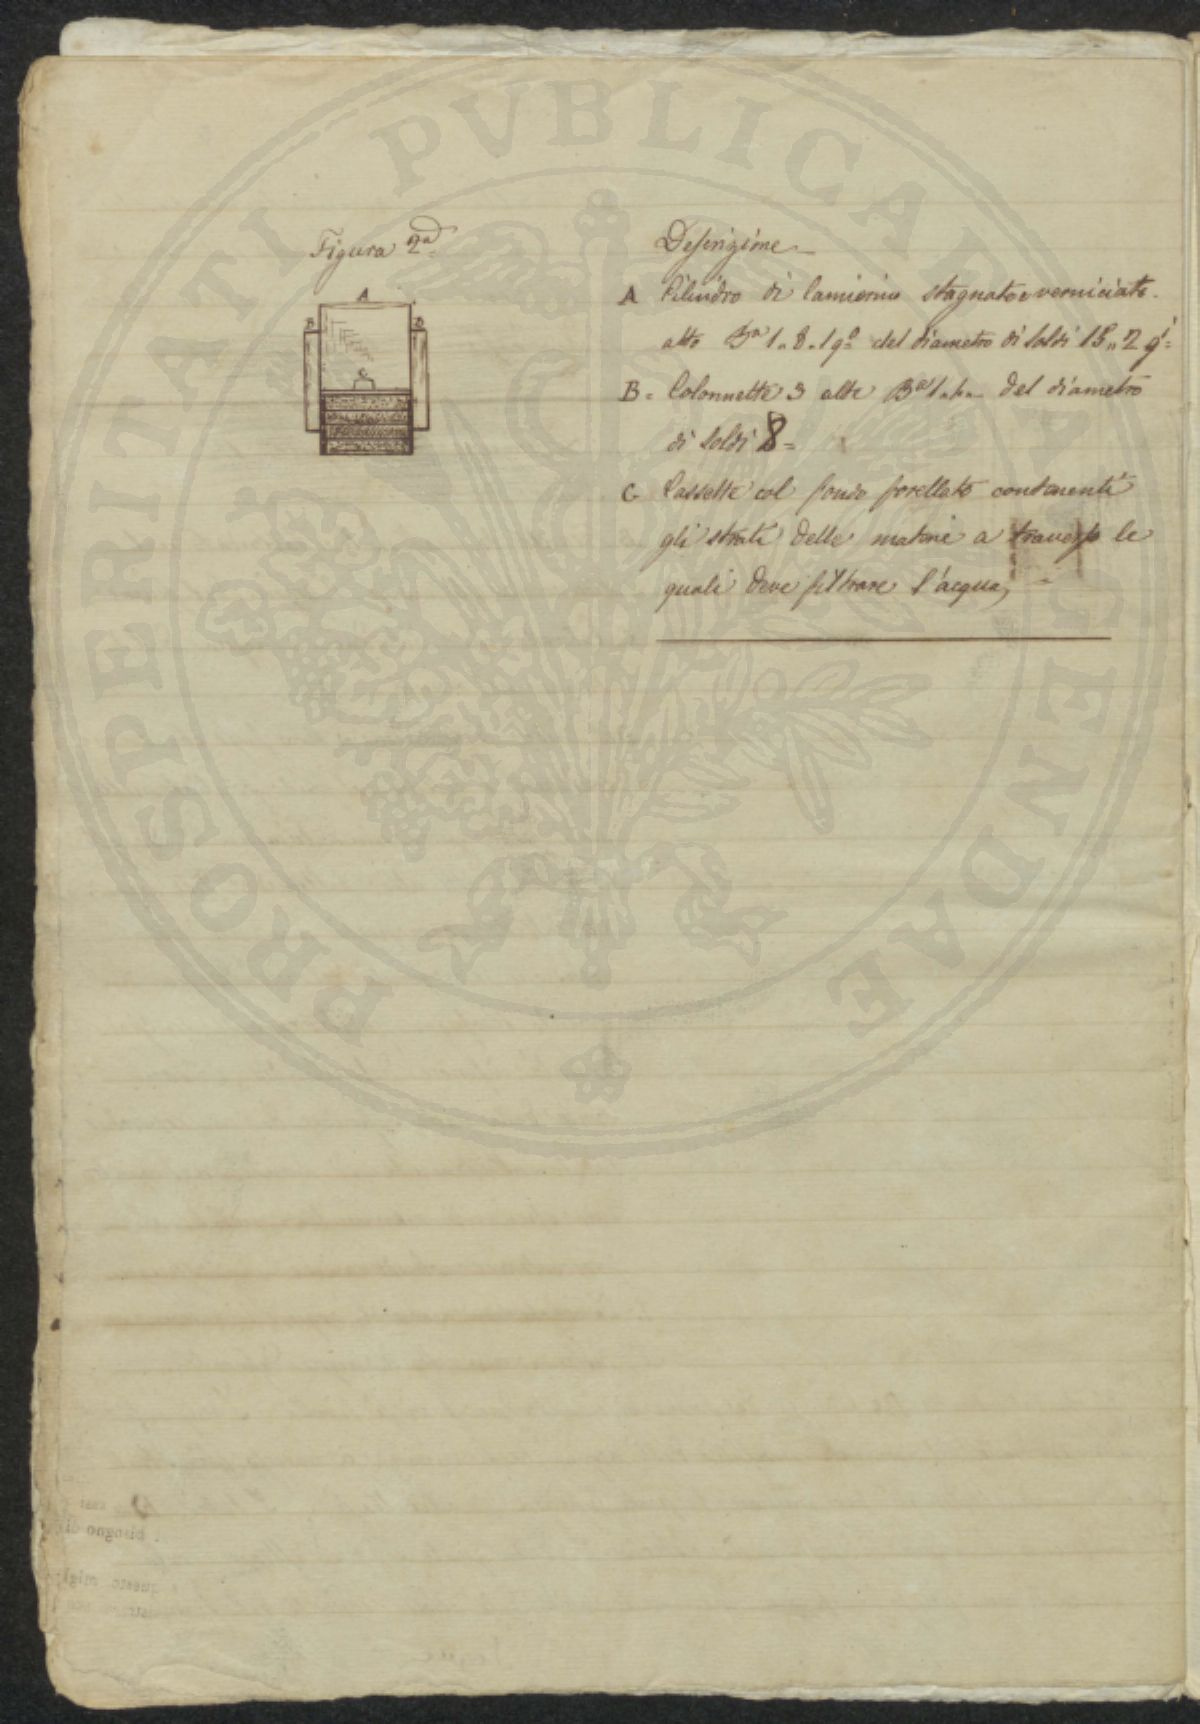 PROSPERITATI PUBLICAE AUGENDAE
Figura 2a
Descrizione
A Cilindro di lamierino stagnato e verniciato.
alto Ba 1.. 8. 1 qo del diametro di soldi 15.. 2 qi =
B = Colonnette 3 alte Ba 1.. del diametro
di soldi 8 =
C Cassette col fondo forellato contenenti
gli strati delle materie a traverso le
quali deve filtrare l'acqua,
A
B B
C
bisogno di
questo